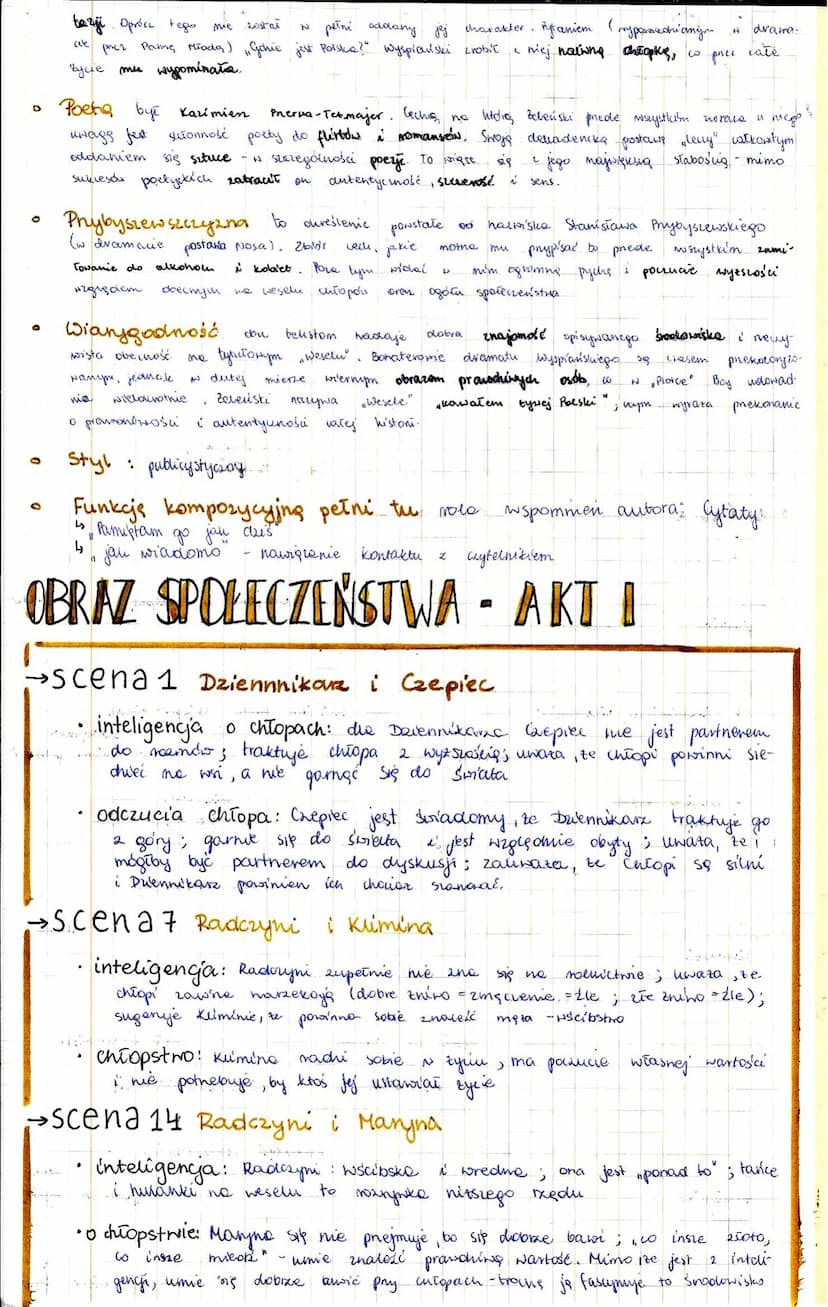 tazji. Oprócz tego nie został w pełni oddany jej charakter. Pytaniem (wypowiedzianym w drama-
cie przez Pannę Młodą) „Gdzie jest Polska?" Wyspiański zrobił z niej naiwną chłopkę, co przez całe
życie mu wypominała.
• Poetą był Kazimierz Przerwa-Tetmajer. Cechą, na którą Żeleński przede wszystkim zwraca u niego
uwagę jest skłonność poety do flirtów i romansów. Swoją dekadencką postawę „leczy" całkowitym
oddaniem się sztuce - w szczególności poezji. To wiąże się z jego największą słabością - mimo
sukcesów poetyckich zatracił on autentyczność, szczerość i sens.
• Przybyszewszczyzna to określenie powstałe od nazwiska Stanisława Przybyszewskiego
(w dramacie postawa Nosa). Zbiór cech, jakie można mu przypisać to przede wszystkim zami-
łowanie do alkoholu i kobiet. Poza tym widać w nim ogromną pychę i poczucie wyższości
względem obecnych na weselu chłopów oraz ogółu społeczeństwa
• Wiarygodność obu tekstom nadaje dobra znajomość opisywanego środowiska i rzeczy-
wista obecność na tytułowym „weselu". Bohaterowie dramatu Wyspiańskiego są czasem przekoloryzo-
wanym, jednak w dużej mierze wiernym obrazem prawdziwych osób, co w „Plotce" Boy udowad-
nia wielokrotnie. Żeleński nazywa „Wesele" „kawałem żywej Polski", czym wyraża przekonanie
o prawdziwości i autentyczności całej historii.
• Styl: publicystyczny
• Funkcję kompozycyjną pełni tu rola wspomnień autora: Cytaty:
↳ „Pamiętam go jak dziś"
↳ „jak wiadomo" - nawiązanie kontaktu z czytelnikiem
OBRAZ SPOŁECZEŃSTWA - AKT I
→scena 1 Dziennnikarz i Czepiec
• inteligencja o chłopach: dla Dziennikarza Czepiec nie jest partnerem
do rozmów; traktuje chłopa z wyższością; uważa, że chłopi powinni sie-
dzieć na wsi, a nie garnąć się do świata
• odczucia chłopa: Czepiec jest świadomy, że Dziennikarz traktuje go
z góry; garnie się do świata i jest względnie obyty; uważa, że i
mógłby być partnerem do dyskusji; zauważa, że chłopi są silni
i Dziennikarz powinien ich chociaż szanować.
→scena 7 Radczyni i Klimina
• inteligencja: Radczyni zupełnie nie zna się na rolnictwie; uważa, że
chłopi zawsze narzekają (dobre żniwo = zmęczenie = źle; złe żniwo = źle);
sugeruje Kliminie, że powinna sobie znaleźć męża - wścibstwo
• chłopstwo: Klimina radzi sobie w życiu, ma poczucie własnej wartości
i nie potrzebuje, by ktoś jej ustawiał życie
→scena 14 Radczyni i Maryna
• inteligencja: Radczyni: wścibska i wredna; ona jest „ponad to"; tańce
i hulanki na weselu to rozrywka niższego rzędu
• o chłopstwie: Maryna się nie przejmuje, bo się dobrze bawi; „co insze złoto,
co insze miedź" - umie znaleźć prawdziwą wartość. Mimo iże jest z inteli-
gencji, umie się dobrze bawić przy chłopach - trochę ją fascynuje to środowisko